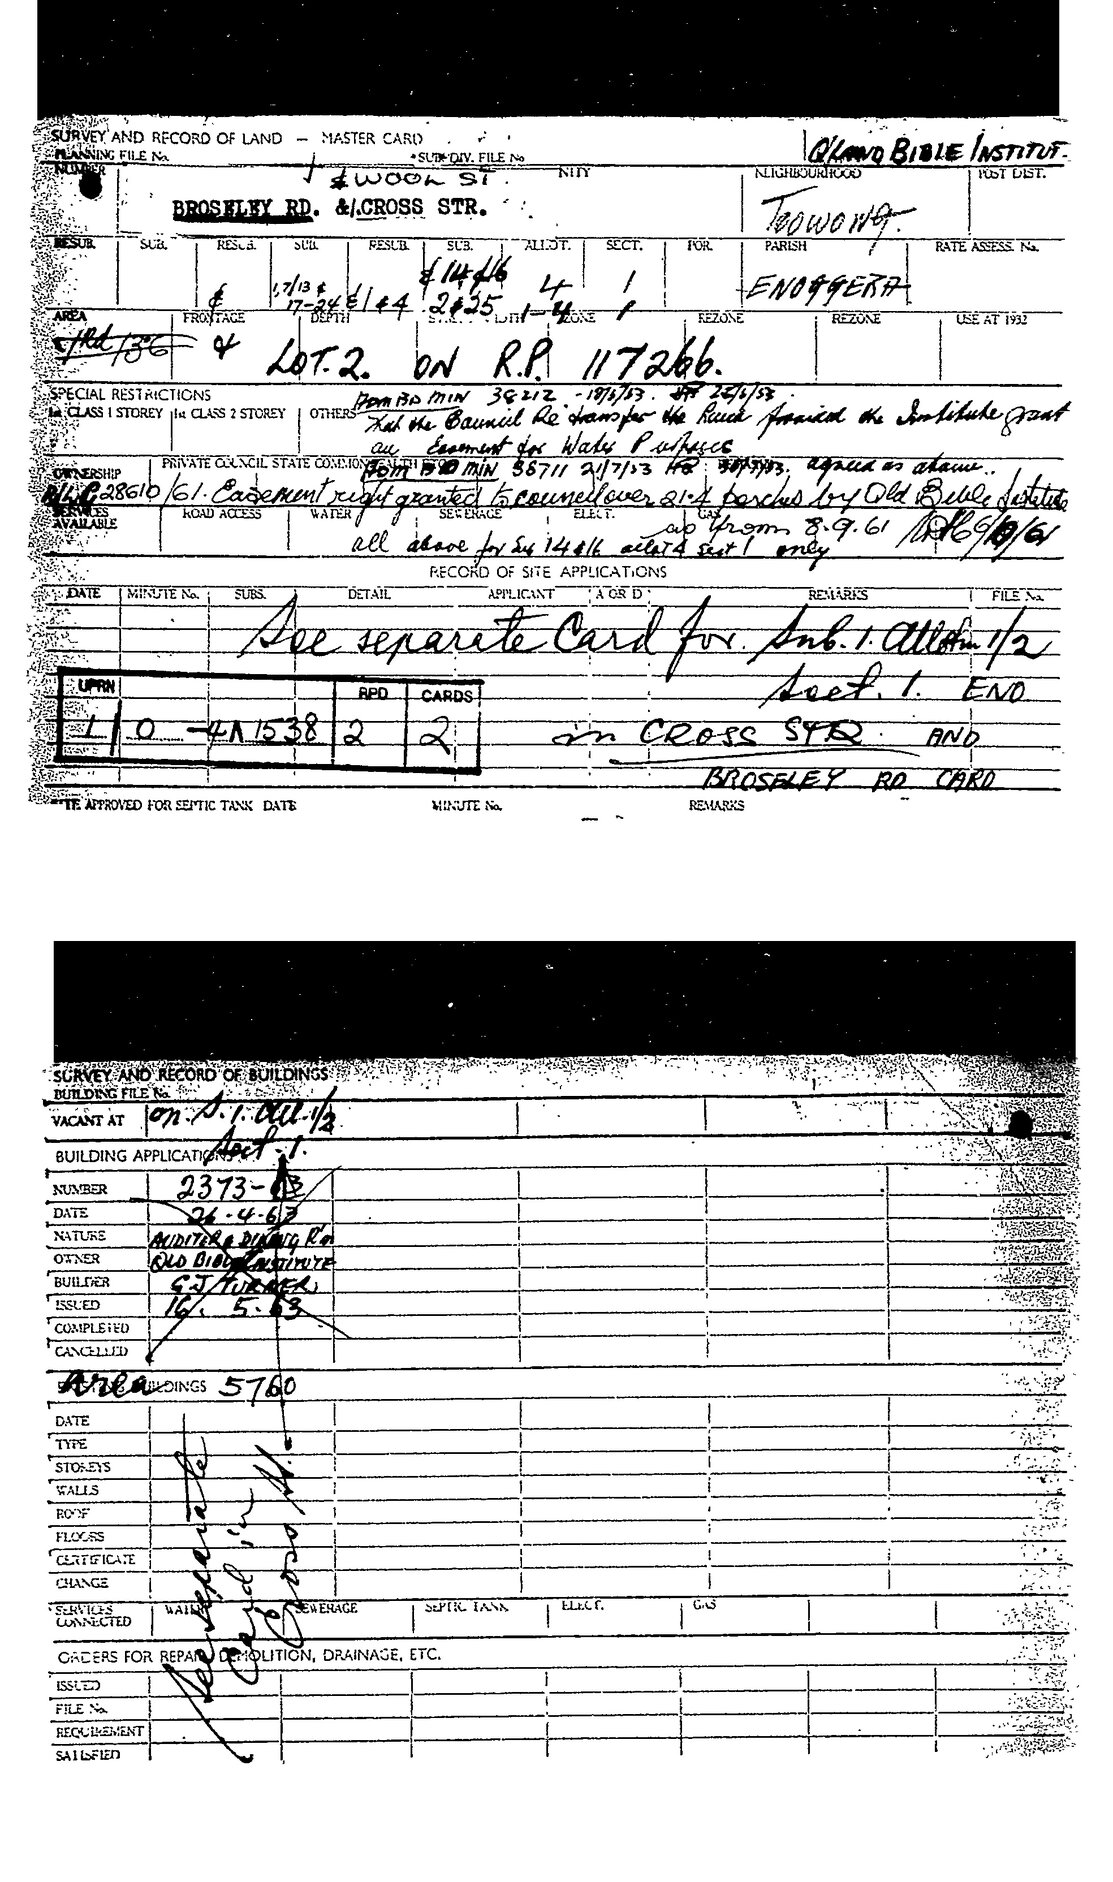 SURVEY AND RECORD OF LAND — MASTER CARD
Q'LAND BIBLE INSTITUT.
PLANNING FILE No. SUB-DIV. FILE No
NUMBER NEIGHBOURHOOD POST DIST.
& WOOL ST.
BROSELEY RD. & CROSS STR.
TOOWONG.
RESUB. SUB. RESUB. SUB. RESUB. SUB. ALLOT. SECT. POR. PARISH RATE ASSESS. No.
& 14 & 16 4 1
ENOGGERA
& 1,7/13 & 17-24 & 1 & 4 2 & 25 1-4 1
AREA FRONTAGE DEPTH ZONE REZONE REZONE USE AT 1932
& LOT. 2. ON R.P. 117266.
SPECIAL RESTRICTIONS
MIN 38212 - 18/6/53 25/6/53
In CLASS 1 STOREY In CLASS 2 STOREY OTHERS
that the Council Re transfer the provided the Institute grant
an Easement for Water Purposes
OWNERSHIP PRIVATE COUNCIL STATE COMMONWEALTH
MIN 38711 21/7/53 agreed as above..
28610/61. Easement right granted to council over 21.4 perches by Qld Bible Institute
SERVICES AVAILABLE ROAD ACCESS WATER SEWERAGE ELECT. GAS
as from 8.9.61
all above for 14 & 16 allot 4 sect 1 only
RECORD OF SITE APPLICATIONS
DATE MINUTE No. SUBS. DETAIL APPLICANT A OR D REMARKS FILE No.
See separate Card for Sub. 1. Allotm 1/2
Sect. 1. ENO
UPRN RPD CARDS
1 0 -4A1538 2 2
in CROSS STR AND
BROSELEY RD CARD
SITE APPROVED FOR SEPTIC TANK DATE MINUTE No. REMARKS
SURVEY AND RECORD OF BUILDINGS
BUILDING FILE No.
VACANT AT on S. 1. All. 1/2
Sect. 1.
BUILDING APPLICATIONS
NUMBER 2373-63
DATE 26-4-63
NATURE AUDITER & DINING R'm
OWNER QLD BIBLE INSTITUTE
BUILDER G.J TURNER
ISSUED 16. 5-63
COMPLETED
CANCELLED
EXISTING BUILDINGS
Area 5760
DATE
TYPE
STOREYS
WALLS
ROOF
FLOORS
CERTIFICATE
CHANGE
See separate
Card in
Cross St.
SERVICES CONNECTED WATER SEWERAGE SEPTIC TANK ELECT. GAS
ORDERS FOR REPAIR, DEMOLITION, DRAINAGE, ETC.
ISSUED
FILE No.
REQUIREMENT
SATISFIED